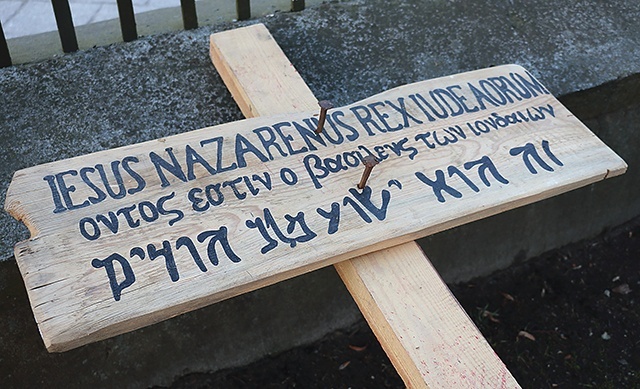 IESUS NAZARENUS REX IUDEAORUM
οντος εστιν ο βασιλενς των ιονδαιων
זה הוא ישוע הודים